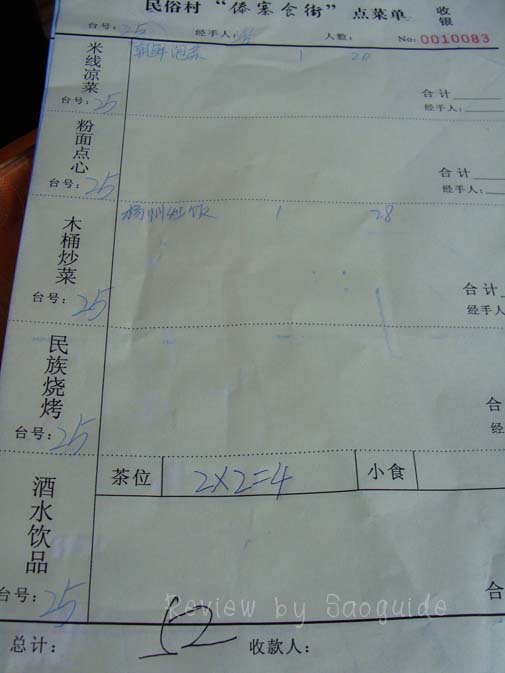 民俗村“傣寨食街”点菜单 收银
台号: 25 经手人: 人数: No: 0010083
米线凉菜 朝鲜泡菜 1 20
合计
台号: 25 经手人:
粉面点心
合计
台号: 25 经手人:
木桶炒菜 扬州炒饭 1 28
合计
台号: 25 经手人
民族烧烤
合
台号: 25 经
酒水饮品 茶位 2×2=4 小食
合
台号: 25
Review by Saoguide
总计: 52 收款人: